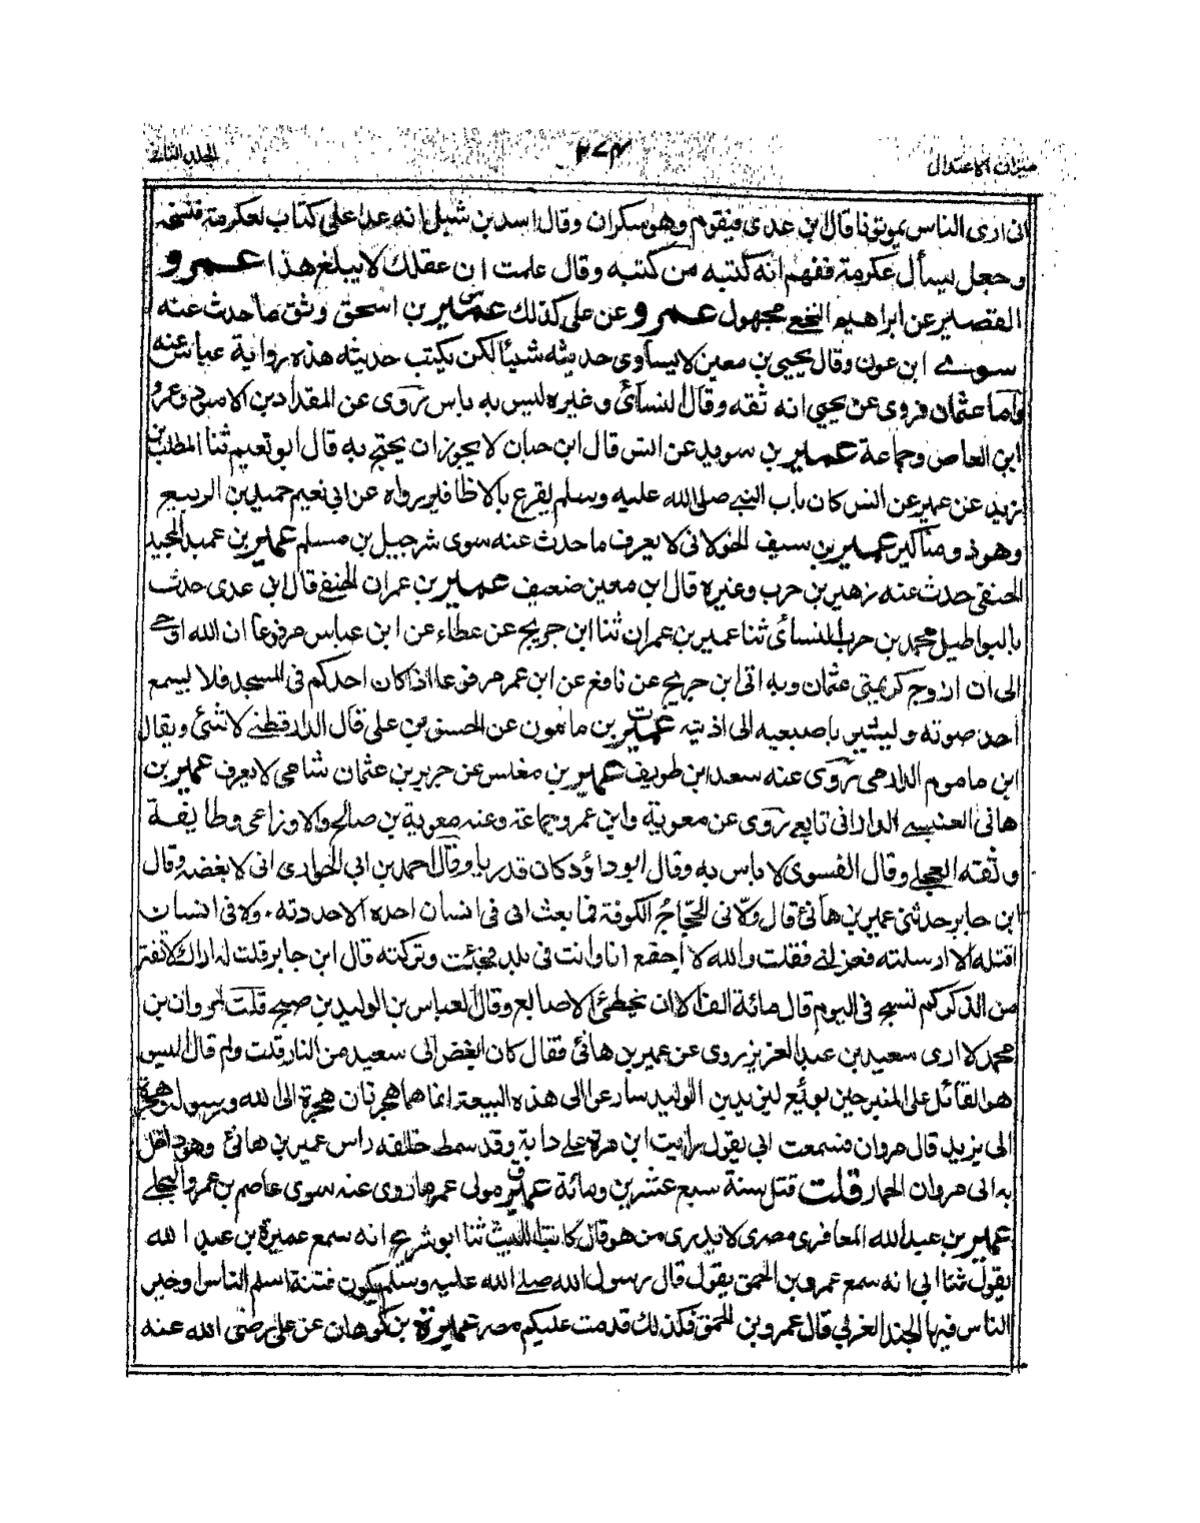 ميزان الاعتدال
٢٧٤
الجلد الثانى
انى ارى الناس يموتونا قال ابن عدى فيقوم وهو سكران وقال اسد بن شبل انه عدا على كتاب لعكرمة فنسخه
وجعل يسأل عكرمة ففهم انه كتبه من كتبه وقال علمت ان عقلك لا يبلغ هذا عمرو
القصير عن ابراهيم النخعى مجهول عمرو عن على كذلك عمير بن اسحق وثق ما حدث عنه
سوى ابن عون وقال يحيى بن معين لا يساوى حديثه شيئا لكن يكتب حديثه هذه رواية عباس عنه
واما عثمان فروى عن يحيى انه ثقه وقال النسائى وغيره ليس به باس روى عن المقداد بن الاسود وعمرو
ابن العاص وجماعة عمير بن سويد عن انس قال ابن حبان لا يجوز ان يحتج به قال ابو نعيم ثنا المطلب بن
يزيد عن عمير عن انس كان باب النبى صلى الله عليه وسلم يقرع بالاظافير رواه عن ابى نعيم حميد بن الربيع
وهو ذو مناكير عمير بن سيف الخولانى لا يعرف ما حدث عنه سوى شرحبيل بن مسلم عمير بن عبد المجيد
الحنفى حدث عنه زهير بن حرب وغيره قال ابن معين ضعيف عمير بن عمران الحنفى قال ابن عدى حدث
بالبواطيل محمد بن حرب النسائى ثنا عمير بن عمران ثنا ابن جريج عن عطاء عن ابن عباس مرفوعا ان الله اوحى
الى ان ازوج كريمتى عثمان وبه اتى ابن جريج عن نافع عن ابن عمر مرفوعا اذا كان احدكم فى المسجد فلا يسمع
احد صوته وليشير باصبعيه الى اذنيه عمير بن مامون عن الحسن بن على قال الدارقطنى لا شئ ويقال
ابن ماموم الدارمى روى عنه سعد ابن طريف عمير بن مغلس عن حريز بن عثمان شامى لا يعرف عمير بن
هانى العنسى الدارانى تابعى روى عن معوية وابن عمر وجماعة وعنه معوية بن صالح والاوزاعى وطايفة
وثقه العجلى وقال الفسوى لا باس به وقال ابو داؤد كان قدريا وقال احمد بن ابى الحوارى انى لا بغضه وقال
ابن جابر حدثنى عمير بن هانئ قال ولانى الحجاج الكوفة فما بعث الى فى انسان احده الا حددته ولا فى انسان
اقتله الا ارسلته فعزلنى فقلت والله لا اجتمع انا وانت فى بلد فجئت وتركته قال ابن جابر قلت له اراك لا تفتر
من الذكر كم تسبح فى اليوم قال مائة الف الا ان تخطئ الاصابع وقال العباس بن الوليد بن صبح قلت لمروان بن
محمد لا ارى سعيد بن عبد العزيز روى عن عمير بن هانئ فقال كان ابغض الى سعيد من النار قلت ولم قال اليس
هو القائل على المنبر حين بويع ليزيد بن الوليد سارعوا الى هذه البيعة انما هما هجرتان هجرة الى الله ورسوله وهجرة
الى يزيد قال مروان فسمعت ابى يقول رايت ابن مرة على دابة وقد سمط خلفه راس عمير بن هانئ وهو داخل
به الى مروان الحمار قلت قتل سنة سبع عشرين ومائة عمير مولى عمر ما روى عنه سوى عاصم بن عمرو البجلى
عمير بن عبد الله المعافرى مصرى لا يدرى من هو قال كاتب الليث ثنا ابو شريح انه سمع عميرة بن عبد الله
يقول ثنا ابى انه سمع عمرو بن الحمق يقول قال رسول الله صلى الله عليه وسلم يكون فتنة اسلم الناس او خير
الناس فيها الجند الغربى قال عمرو بن الحمق فكذلك قدمت عليكم مصر عميرة بن كوهان عن على رضى الله عنه